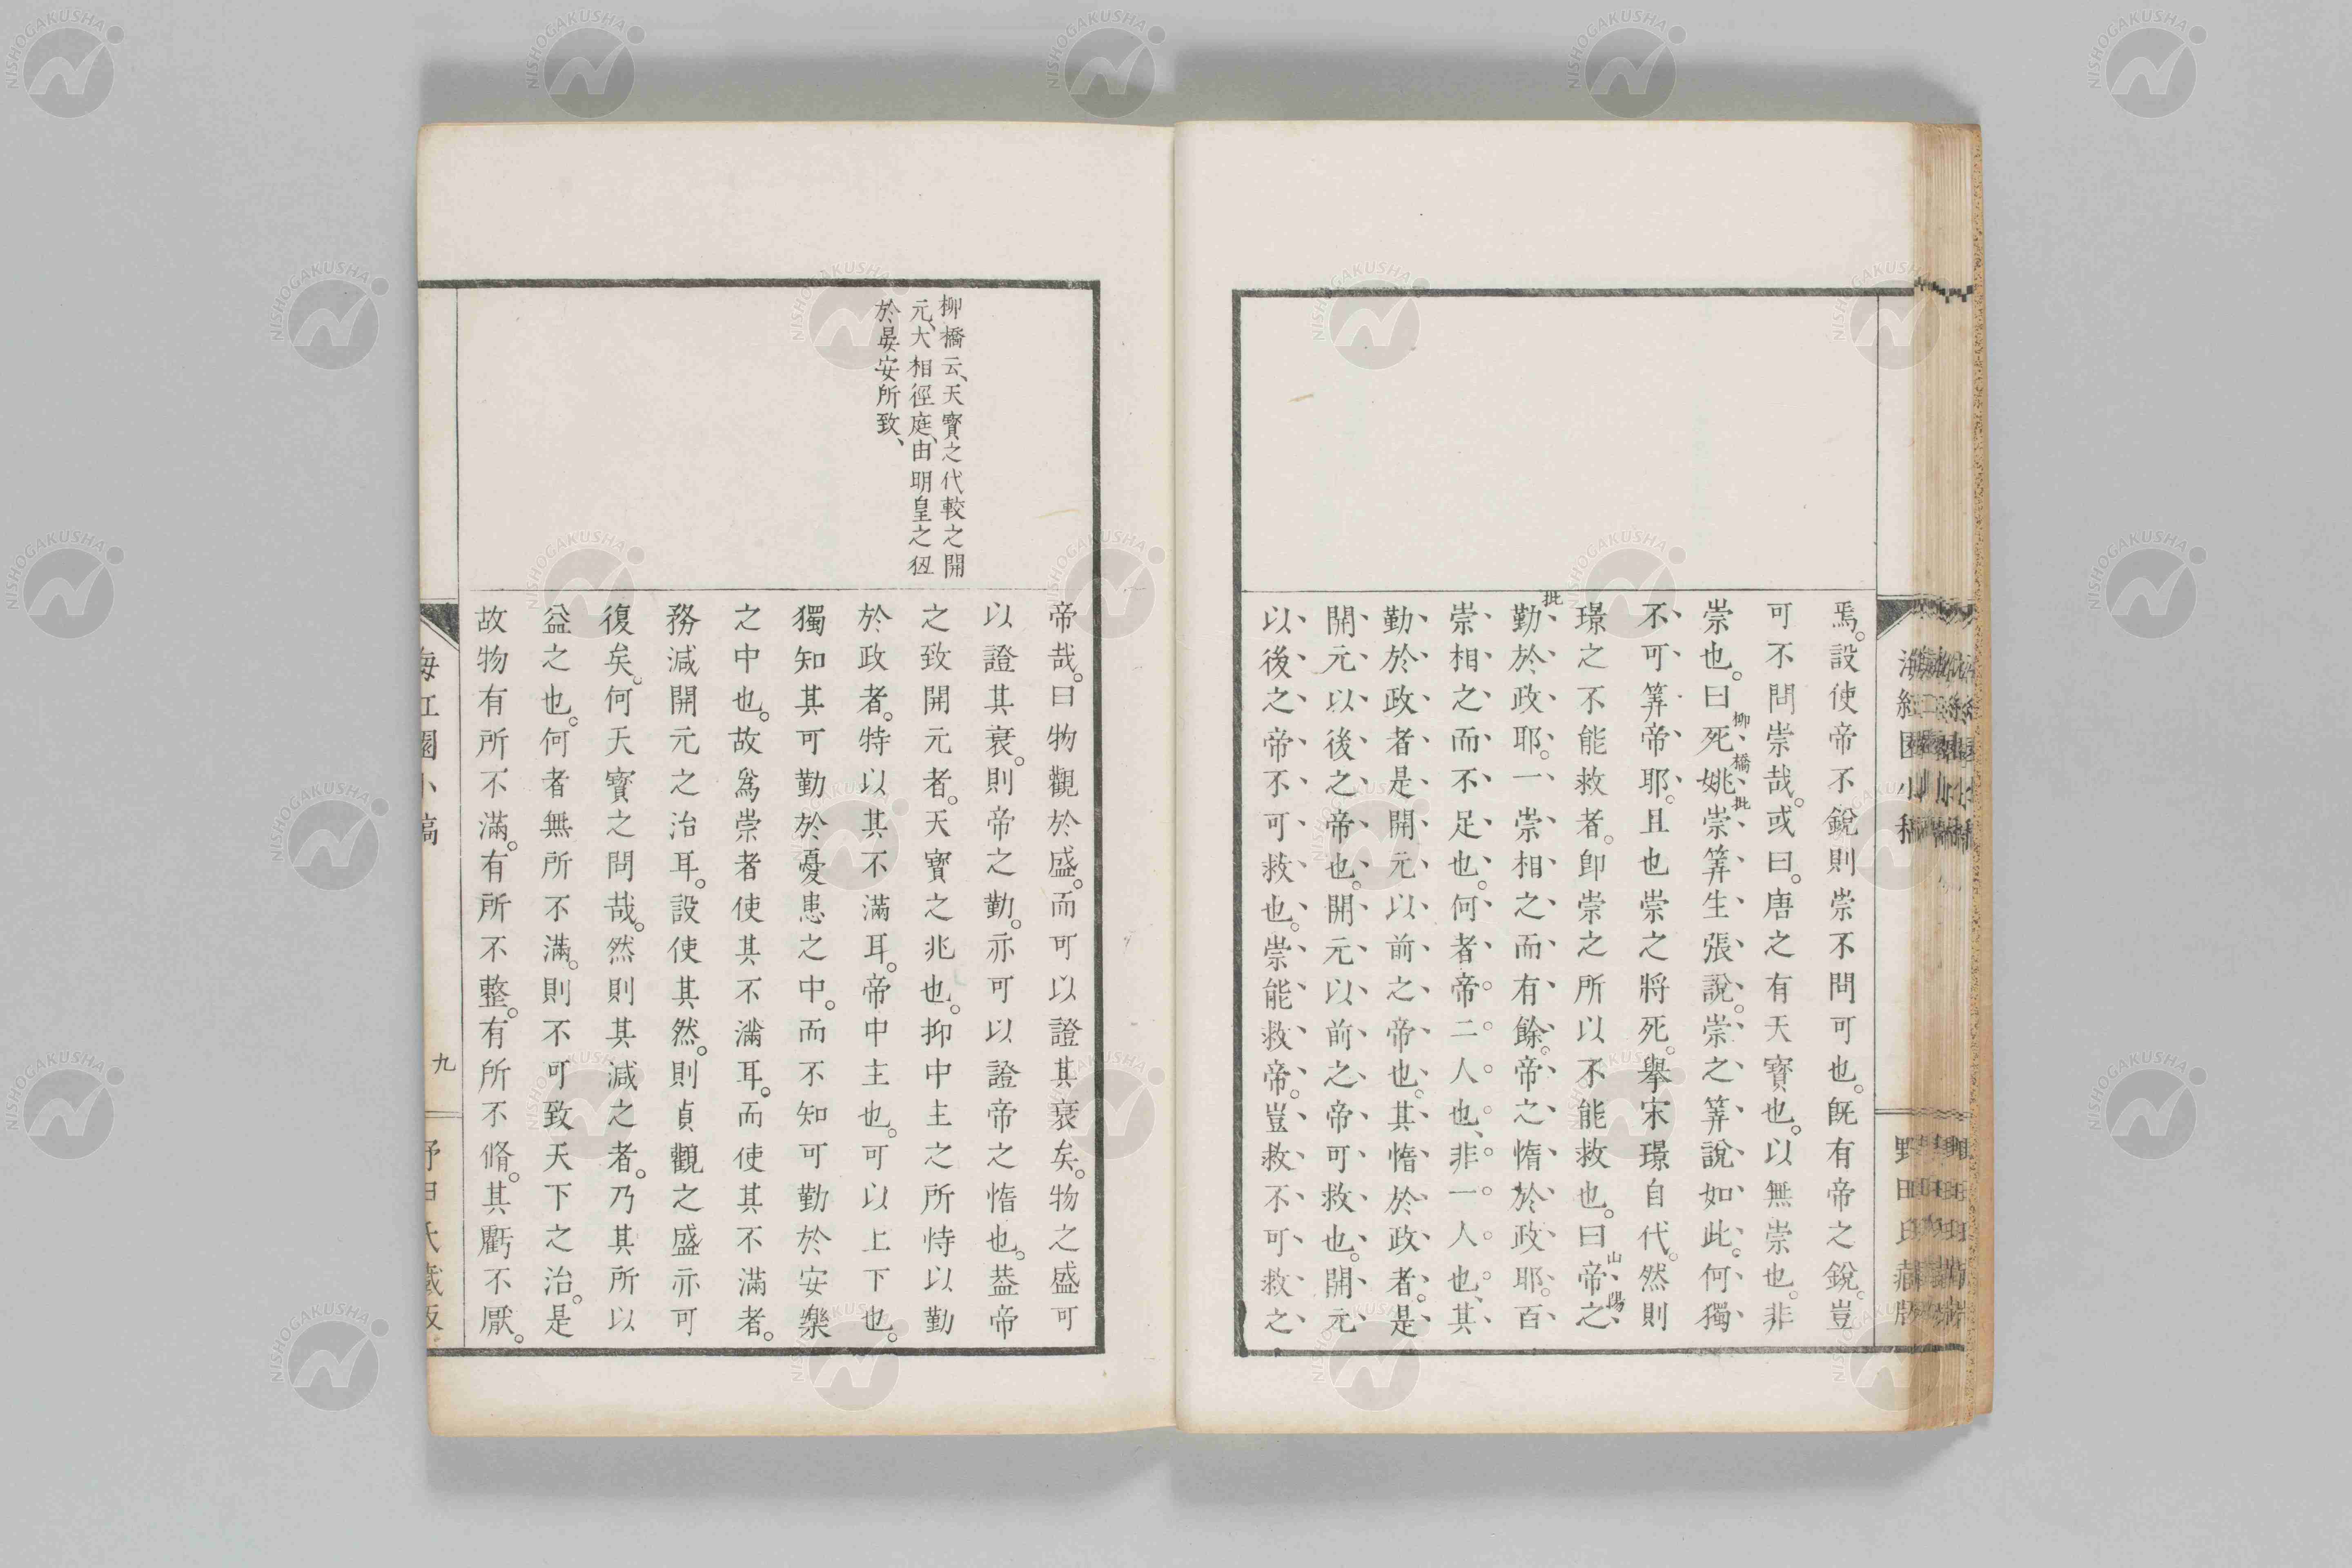 焉。設使帝不銳則崇不問可也。旣有帝之銳。豈
可不問崇哉。或曰。唐之有天寶也。以無崇也。非
崇也。曰死姚崇筭生張說。崇之筭說如此。何獨
柳橋批
不可筭帝耶。且也崇之將死。擧宋璟自代。然則
璟之不能救者。卽崇之所以不能救也。曰帝之
山陽
批
勤於政耶。一崇相之而有餘。帝之惰於政耶。百
崇相之而不足也。何者。帝二人也、非一人也、其
勤於政者是開元以前之帝也。其惰於政者。是
開元以後之帝也。開元以前之帝可救也。開元
以後之帝不可救也。崇能救帝。豈救不可救之
海紅園小稿
野田氏藏版
柳橋云、天寶之代較之開
元、大相徑庭、由明皇之狃
於晏安所致、
帝哉。曰物觀於盛。而可以證其衰矣。物之盛可
以證其衰。則帝之勤。亦可以證帝之惰也。葢帝
之致開元者。天寶之兆也。抑中主之所恃以勤
於政者。特以其不滿耳。帝中主也。可以上下也。
獨知其可勤於憂患之中。而不知可勤於安樂
之中也。故爲崇者使其不滿耳。而使其不滿者。
務減開元之治耳。設使其然。則貞觀之盛亦可
復矣。何天寶之問哉。然則其減之者。乃其所以
益之也。何者無所不滿。則不可致天下之治。是
故物有所不滿。有所不整。有所不脩。其虧不厭。
海紅園小稿
九
野田氏藏版
NISHOGAKUSHA